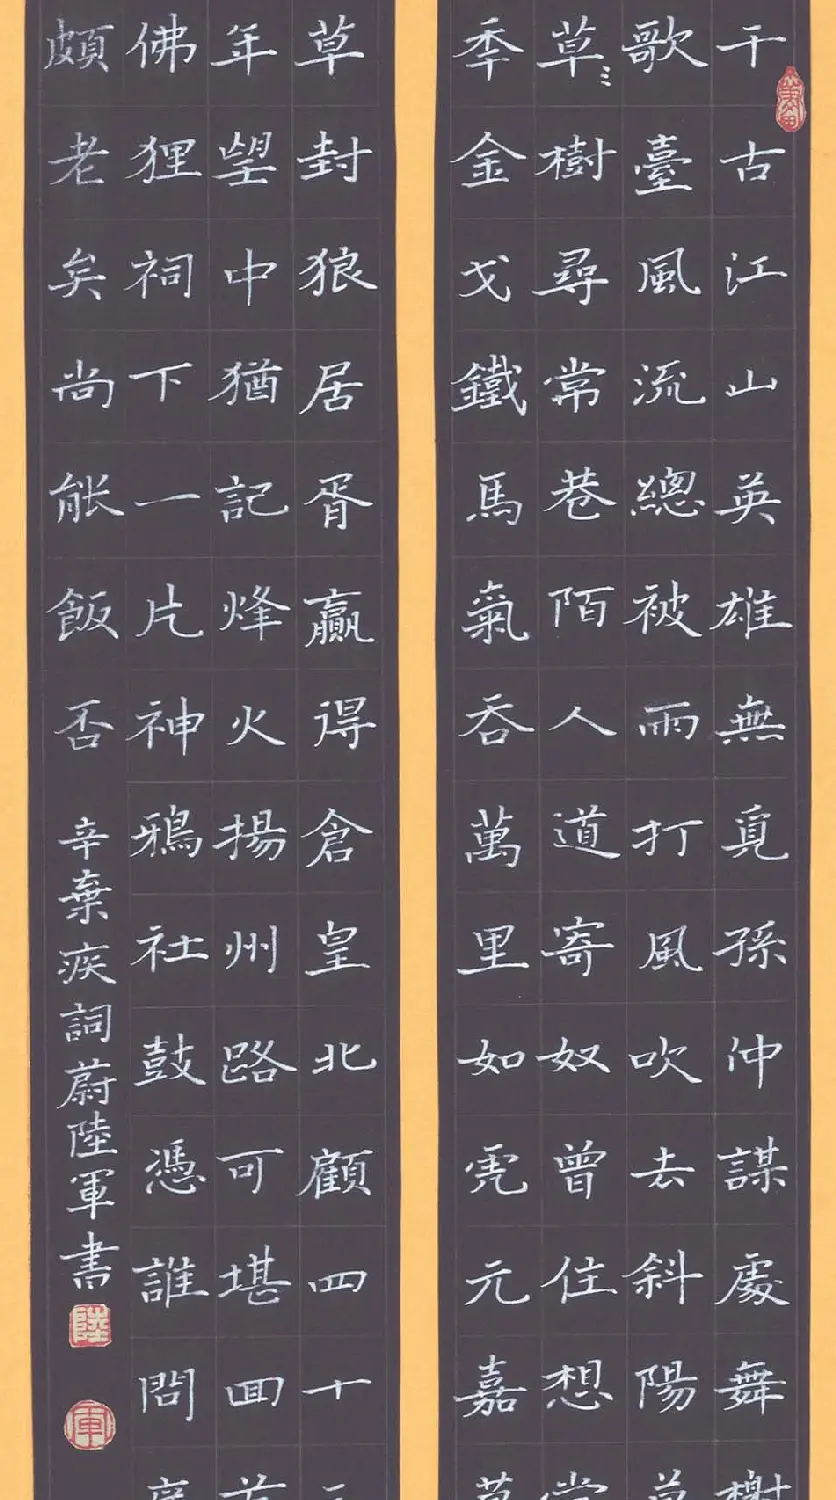 千古江山英雄無覓孫仲謀處舞榭
歌臺風流總被雨打風吹去斜陽草
草〻樹尋常巷陌人道寄奴曾住想當
秊金戈鐵馬氣吞萬里如虎元嘉草
草封狼居胥贏得倉皇北顧四十三
年望中猶記烽火揚州路可堪回首
佛狸祠下一片神鴉社鼓憑誰問廉
頗老矣尚能飯否
辛棄疾詞蔚陸軍書
陸
軍